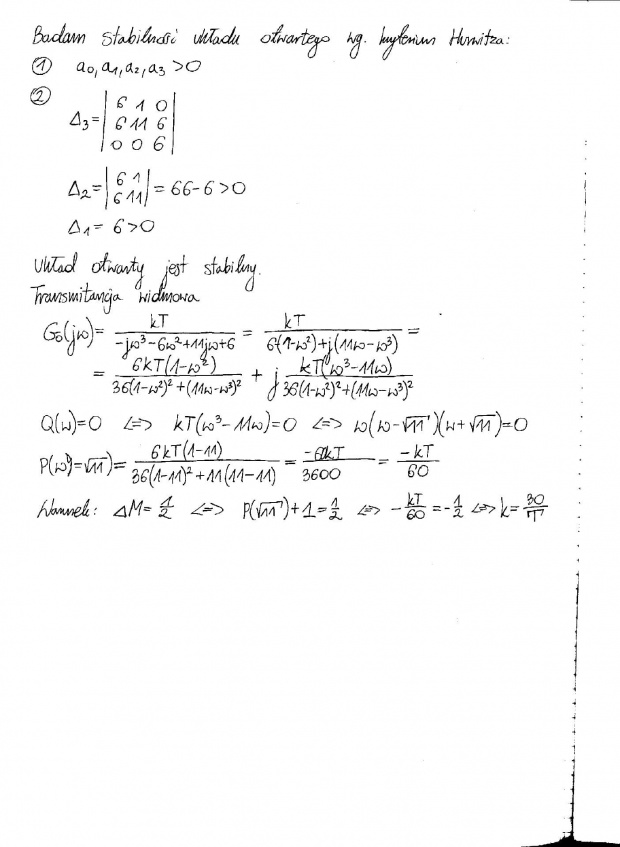 Badam stabilność układu otwartego wg. kryterium Hurwitza:
① a₀, a₁, a₂, a₃ >0
②
Δ₃= | 6 1 0 |
| 6 11 6 |
| 0 0 6 |
Δ₂= | 6 1 |
| 6 11 | = 66-6>0
Δ₁= 6>0
Układ otwarty jest stabilny.
Transmitancja widmowa
G₀(jω)= kT / (-jω³-6ω²+11jω+6) = kT / (6(1-ω²)+j(11ω-ω³)) =
= 6kT(1-ω²) / (36(1-ω²)²+(11ω-ω³)²) + j kT(ω³-11ω) / (36(1-ω²)²+(11ω-ω³)²)
Q(ω)=0 <=> kT(ω³-11ω)=0 <=> ω(ω-√11)(ω+√11)=0
P(ω=√11)= 6kT(1-11) / (36(1-11)²+11(11-11)) = -60kT / 3600 = -kT / 60
Warunek: ΔM= 1/2 <=> P(√11)+1= 1/2 <=> - kT/60 = - 1/2 <=> k= 30/T